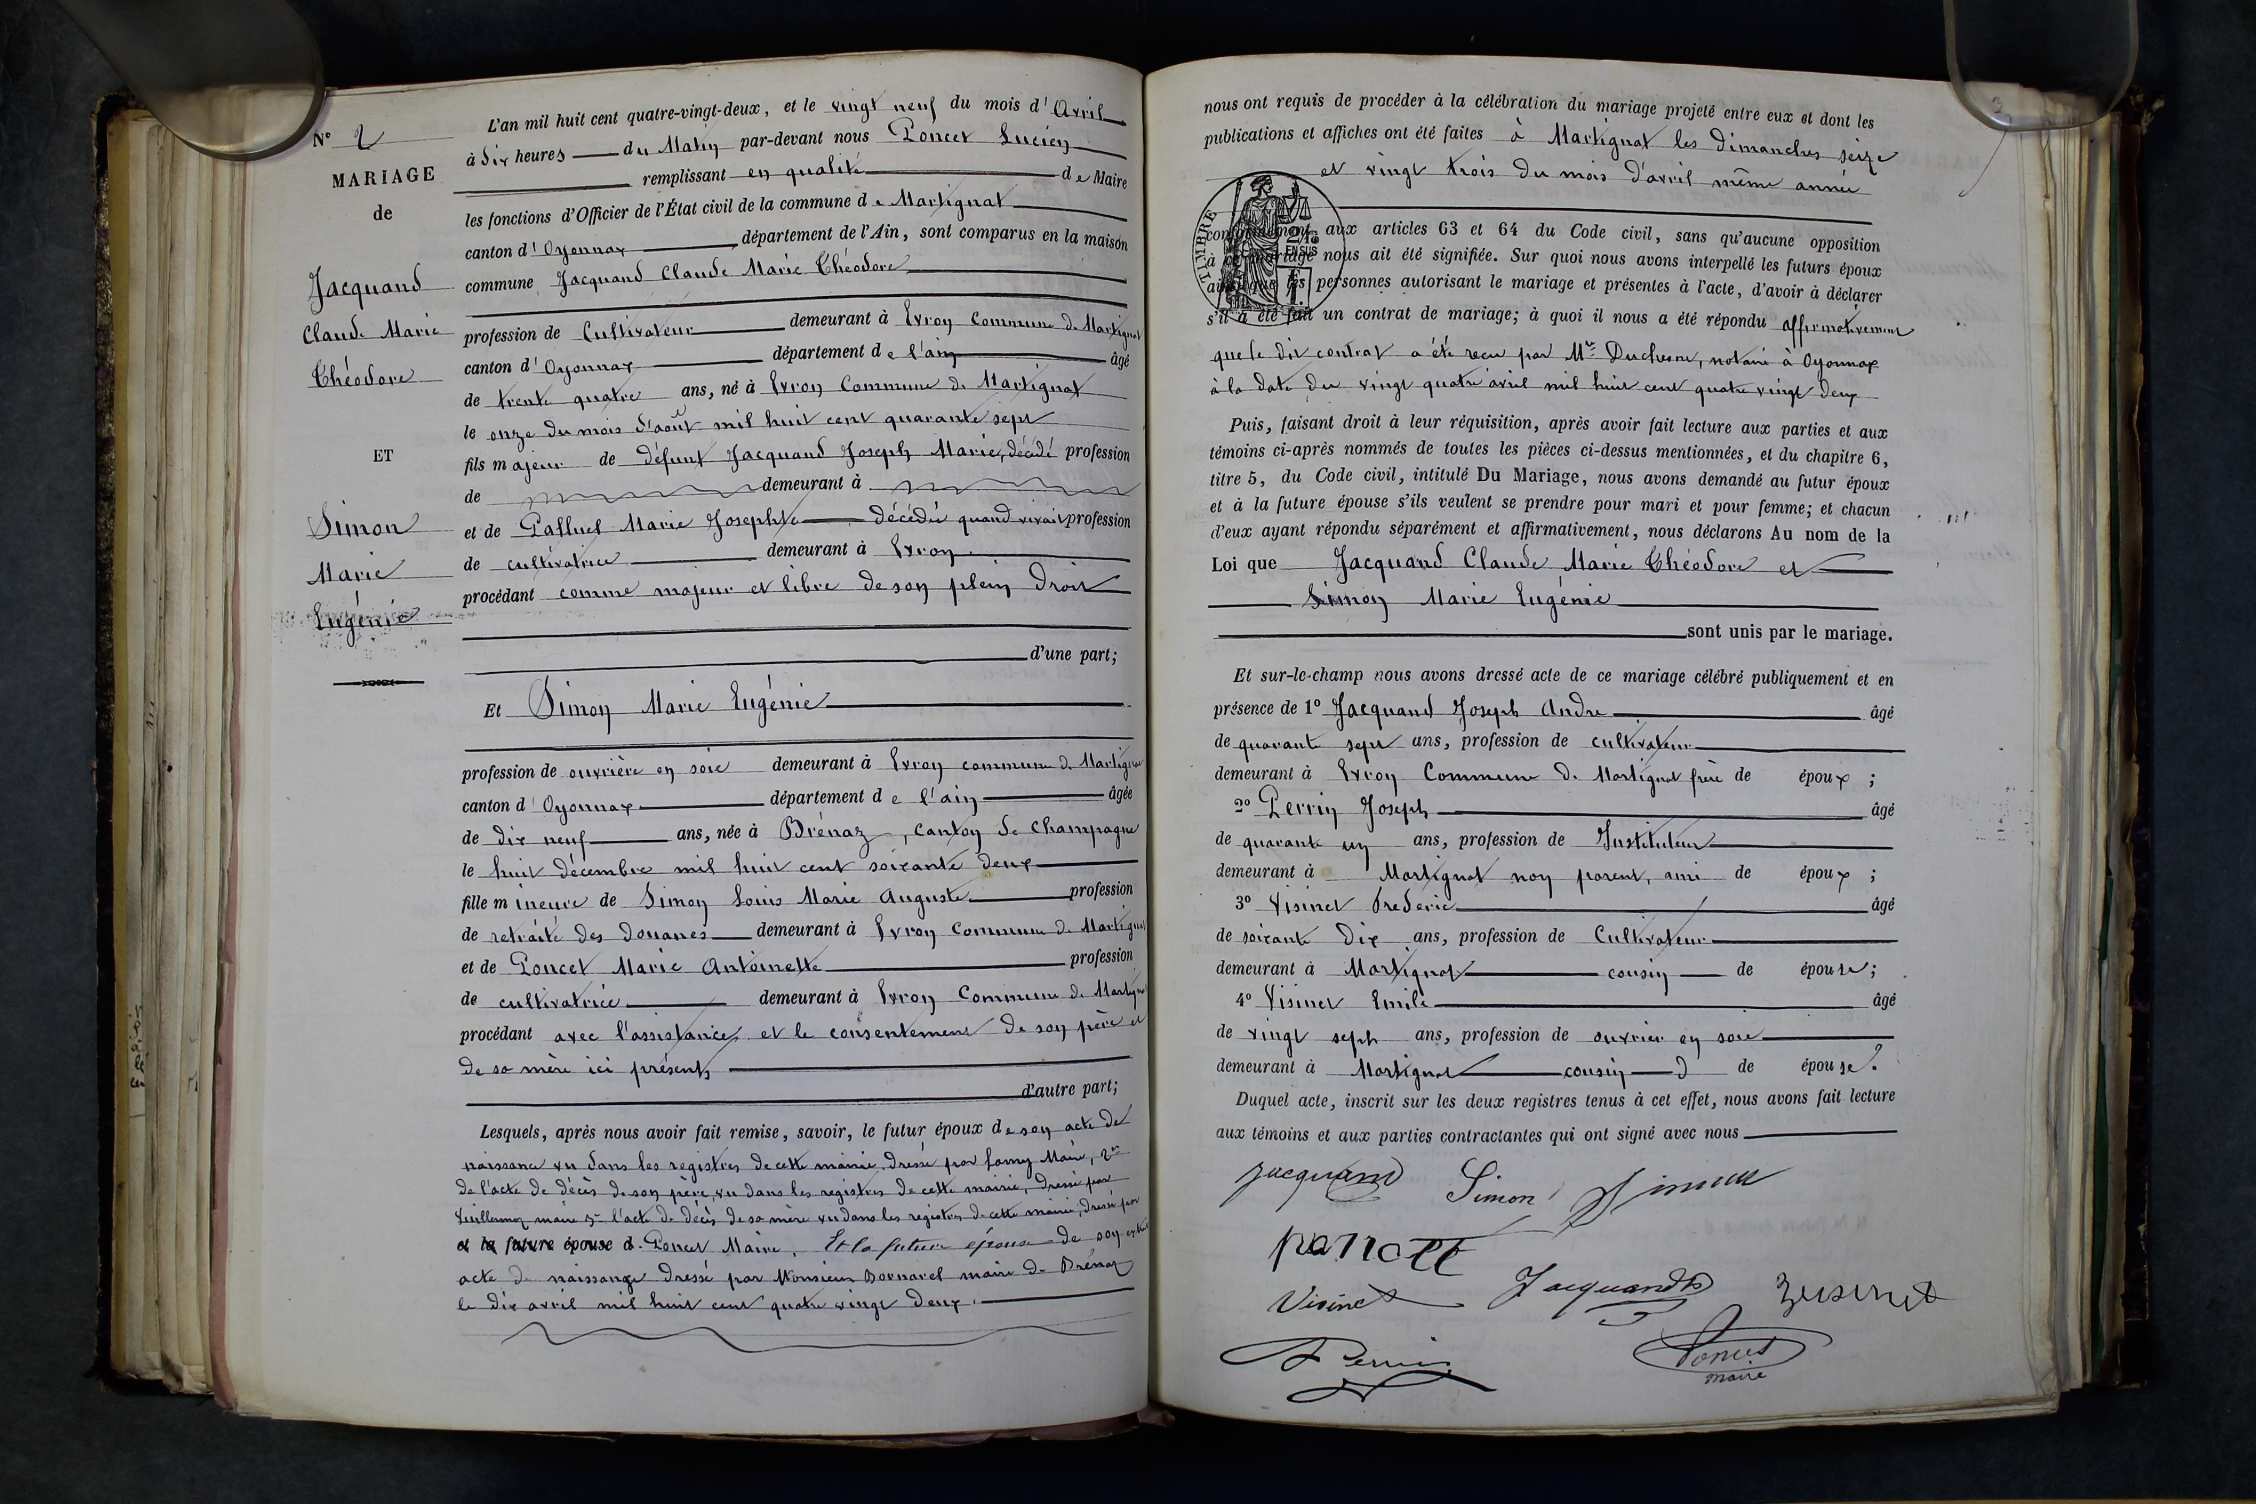 N° 2
MARIAGE
de
Jacquand
Claude Marie
Théodore
ET
Simon
Marie
Eugénie
L'an mil huit cent quatre-vingt-deux, et le vingt neuf du mois d'Avril
à dix heures du Matin par-devant nous Poncet Lucien
remplissant en qualité de Maire
les fonctions d'Officier de l'État civil de la commune de Martignat
canton d'Oyonnax département de l'Ain, sont comparus en la maison
commune Jacquand Claude Marie Théodore
profession de Cultivateur demeurant à Evron Commune de Martignat
canton d'Oyonnax département de l'ain âgé
de trente quatre ans, né à Evron Commune de Martignat
le onze du mois d'août mil huit cent quarante sept
fils majeur de défunt Jacquand Joseph Marie, décédé profession
de demeurant à
et de Palluel Marie Josephte décédée quand vivait profession
de cultivatrice demeurant à Evron
procédant comme majeur et libre de son plein droit
d'une part;
Et Simon Marie Eugénie
profession de ouvrière en soie demeurant à Evron commune de Martignat
canton d'Oyonnax département de l'ain âgée
de dix neuf ans, née à Brénaz, canton de Champagne
le huit décembre mil huit cent soixante deux
fille mineure de Simon Louis Marie Auguste profession
de retraité des douanes demeurant à Evron Commune de Martignat
et de Poncet Marie Antoinette profession
de cultivatrice demeurant à Evron Commune de Martignat
procédant avec l'assistance et le consentement de son père et
de sa mère ici présents
d'autre part;
Lesquels, après nous avoir fait remise, savoir, le futur époux de son acte de
naissance vu dans les registres de cette mairie, dressé par Maire, 2nt
de l'acte de décès de son père, vu dans les registres de cette mairie, dressé par
Vuillermoz maire 3nt l'acte de décès de sa mère vu dans les registres de cette mairie, dressé par
et la future épouse d. Poncet Maire. Et la future épouse de son extrait
acte de naissance dressé par Monsieur Bornarel maire de Brénaz
le dix avril mil huit cent quatre vingt deux.
nous ont requis de procéder à la célébration du mariage projeté entre eux et dont les
publications et affiches ont été faites à Martignat les dimanches seize
et vingt trois du mois d'avril même année
TIMBRE
conformément aux articles 63 et 64 du Code civil, sans qu'aucune opposition
à ce mariage nous ait été signifiée. Sur quoi nous avons interpellé les futurs époux
ainsi que les personnes autorisant le mariage et présentes à l'acte, d'avoir à déclarer
s'il a été fait un contrat de mariage; à quoi il nous a été répondu affirmativement
que le dit contrat a été reçu par Me Duchesne, notaire à Oyonnax
à la date du vingt quatre avril mil huit cent quatre vingt deux
Puis, faisant droit à leur réquisition, après avoir fait lecture aux parties et aux
témoins ci-après nommés de toutes les pièces ci-dessus mentionnées, et du chapitre 6,
titre 5, du Code civil, intitulé Du Mariage, nous avons demandé au futur époux
et à la future épouse s'ils veulent se prendre pour mari et pour femme; et chacun
d'eux ayant répondu séparément et affirmativement, nous déclarons Au nom de la
Loi que Jacquand Claude Marie Théodore et
Simon Marie Eugénie
sont unis par le mariage.
Et sur-le-champ nous avons dressé acte de ce mariage célébré publiquement et en
présence de 1° Jacquand Joseph Andre âgé
de quarante sept ans, profession de cultivateur
demeurant à Evron Commune de Martignat frère de époux;
2° Perrin Joseph âgé
de quarante un ans, profession de Instituteur
demeurant à Martignat non parent, ami de époux;
3° Visinet Frederic âgé
de soixante dix ans, profession de Cultivateur
demeurant à Martignat cousin de épouse;
4° Visinet Emile âgé
de vingt sept ans, profession de ouvrier en soie
demeurant à Martignat cousin de épouse.
Duquel acte, inscrit sur les deux registres tenus à cet effet, nous avons fait lecture
aux témoins et aux parties contractantes qui ont signé avec nous
Jacquand Simon Simon
Visinet Jacquand
Perrin Poncet
maire